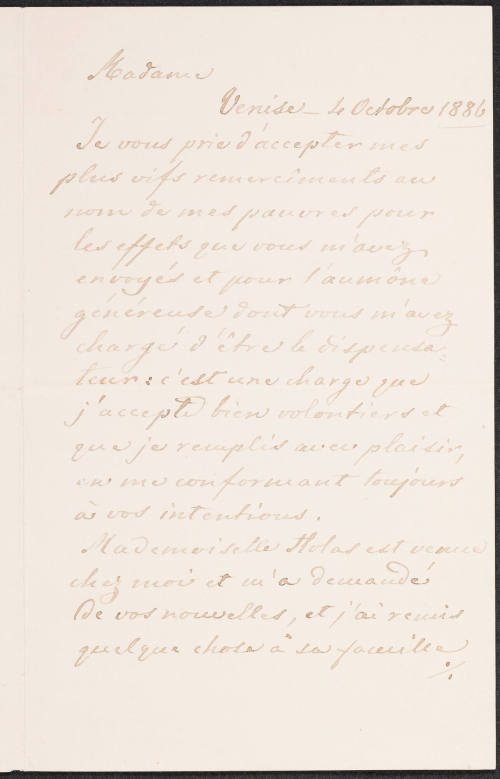 Madame
Venise - 4 Octobre 1886
Je vous prie d'accepter mes
plus vifs remercîments au
nom de mes pauvres pour
les effets que vous m'avez
envoyés et pour l'aumône
généreuse dont vous m'avez
chargé d'être le dispensa-
teur: c'est une charge que
j'accepte bien volontiers et
que je remplis avec plaisir,
en me conformant toujours
à vos intentions.
Mademoiselle Holas est venue
chez moi et m'a demandé
de vos nouvelles, et j'ai remis
quelque chose à sa famille
./.